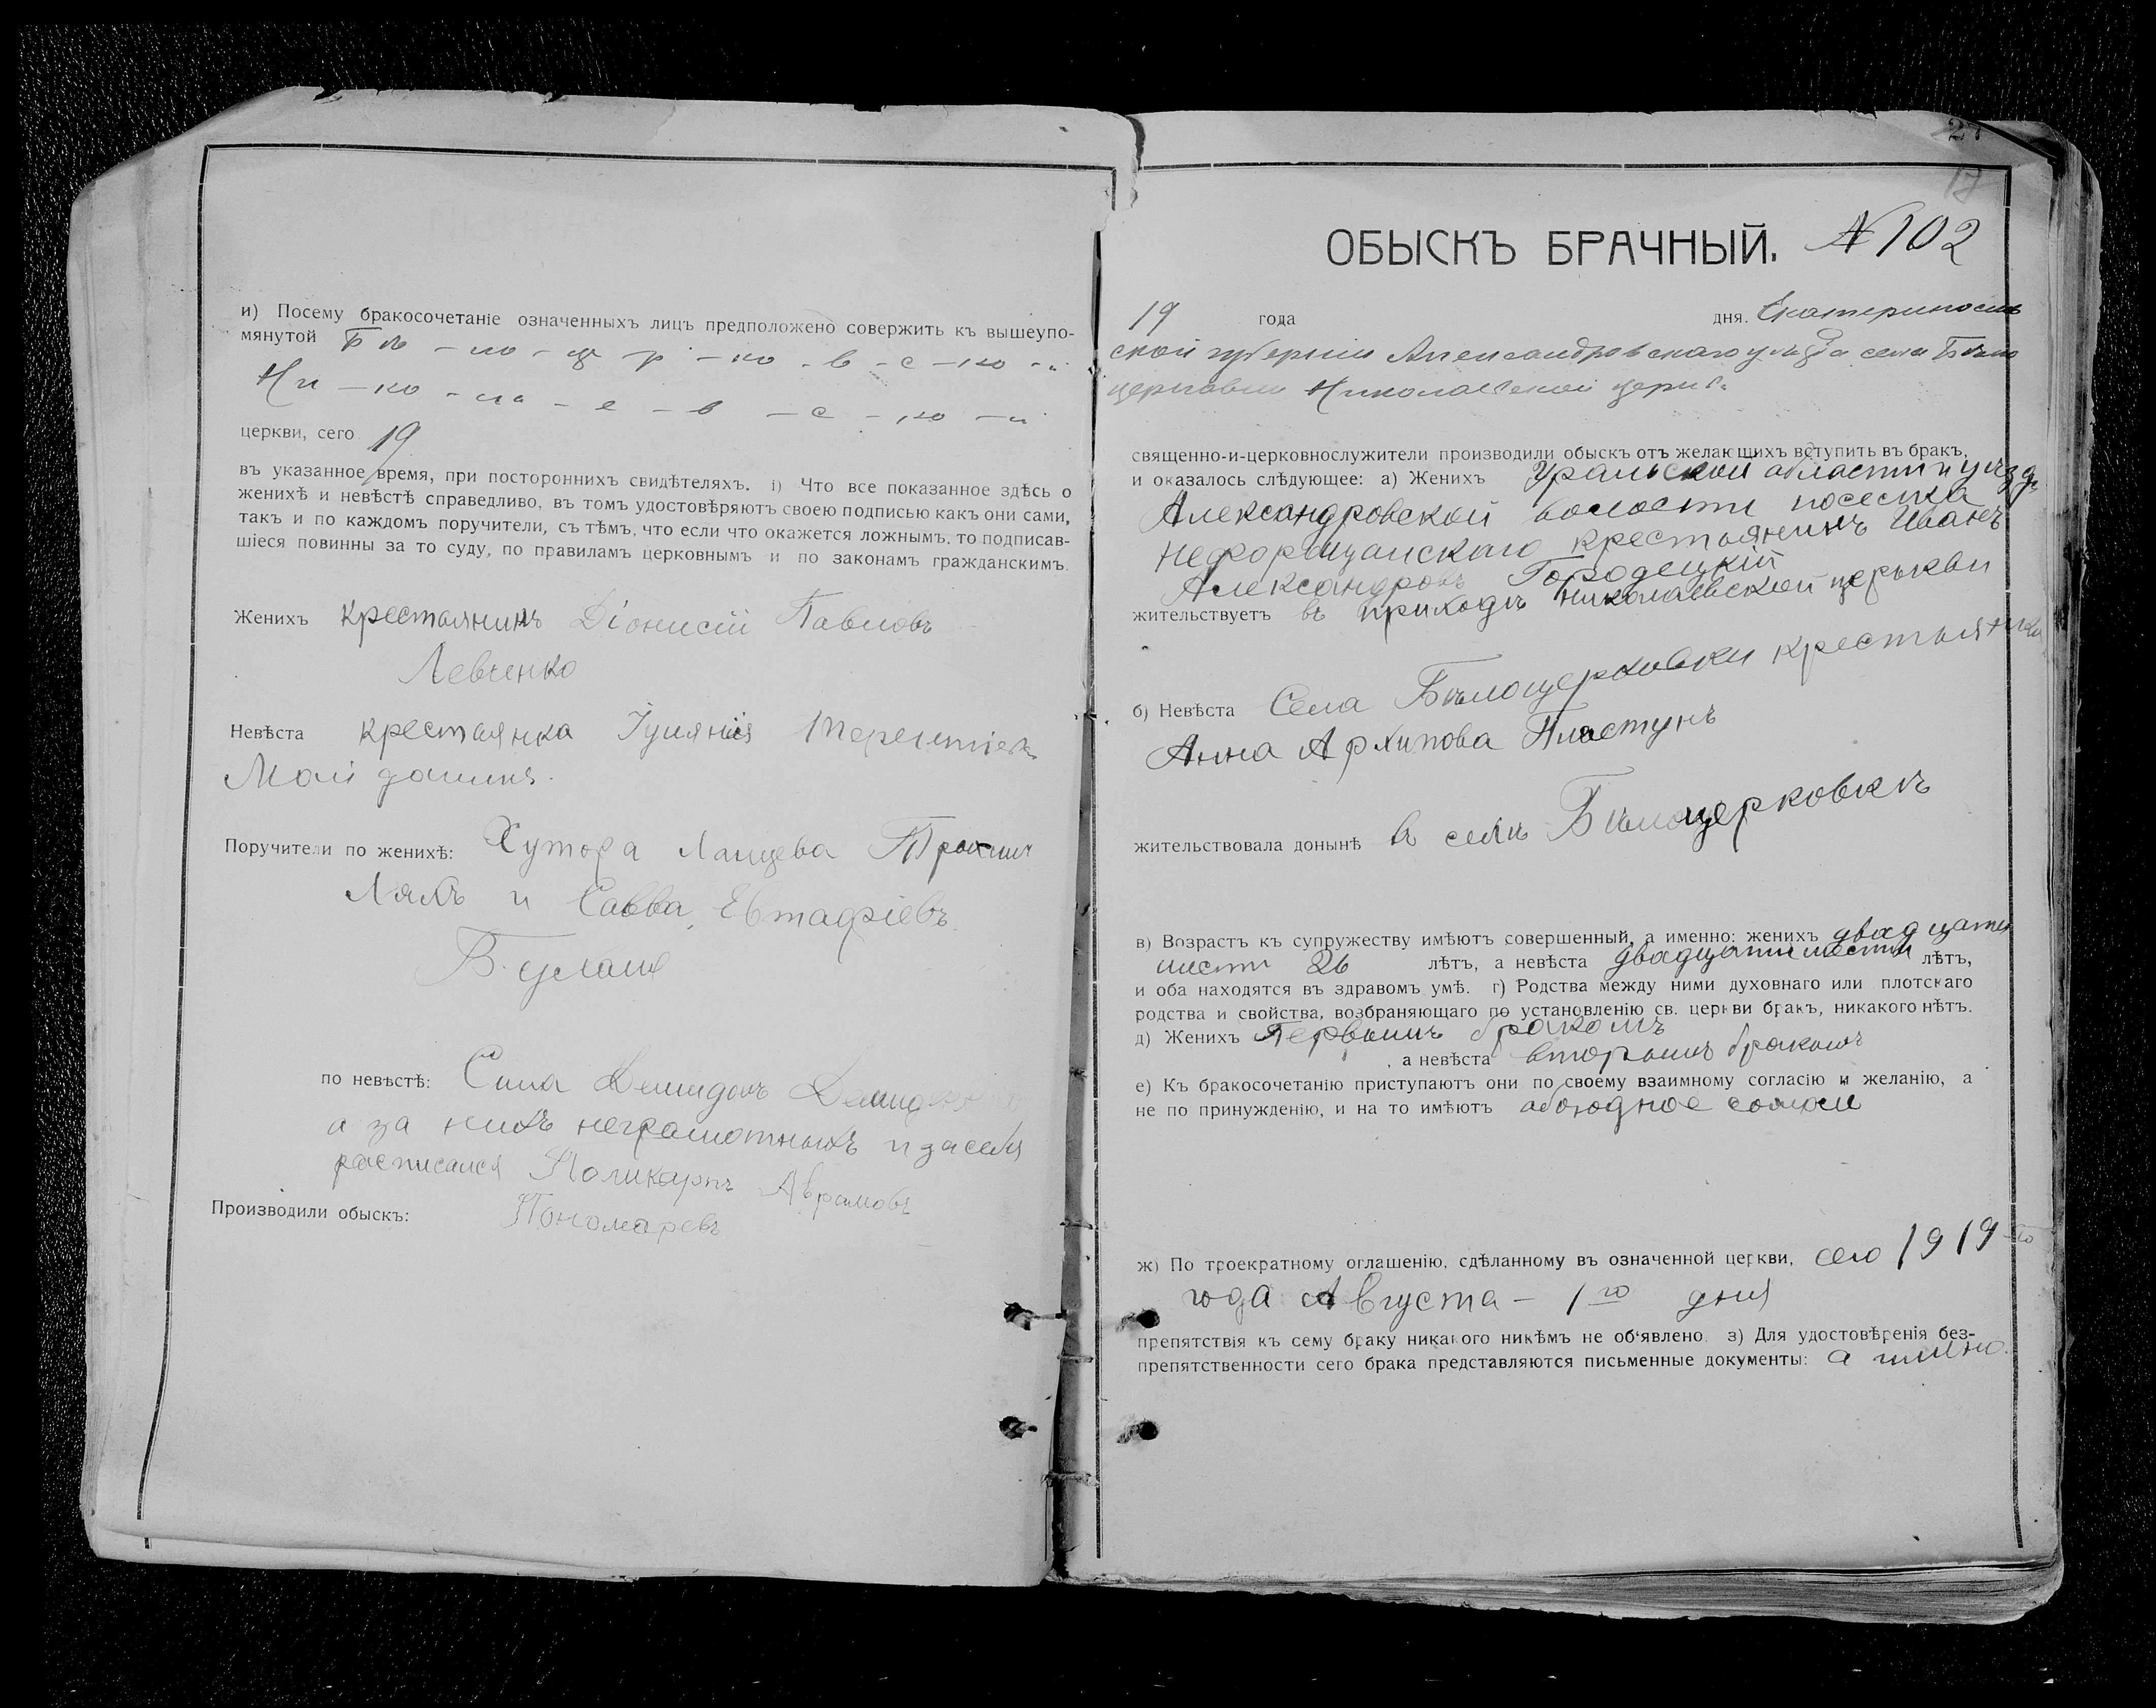 и) Посему бракосочетаніе означенныхъ лицъ предположено совержить къ вышеупо-
мянутой Бѣ - ло - ц - р - ко - в - с - ко - й
Ни - ко - ла - е - в - с - ко - й
церкви, сего 19
въ указанное время, при постороннихъ свидѣтеляхъ. і) Что все показанное здѣсь о
женихѣ и невѣстѣ справедливо, въ томъ удостовѣряютъ своею подписью какъ они сами,
такъ и по каждомъ поручители, съ тѣмъ, что если что окажется ложнымъ, то подписав-
шіеся повинны за то суду, по правиламъ церковнымъ и по законамъ гражданскимъ.
Женихъ крестьянинъ Діонисій Павловъ
Левченко
Невѣста крестьянка Іуліянія
Поручители по женихѣ: Хутора Ланцева
Лялъ и Савва Евтафіевъ
по невѣстѣ: Сила Демидовъ
а за нихъ неграмотныхъ и за себя
расписался Поликарпъ Аврамовъ
Пономаревъ
Производили обыскъ:
27
17
ОБЫСКЪ БРАЧНЫЙ. №102
19 года дня. Екатеринослав
ской губерніи Александровскаго уѣзда села Бѣло
церковки Николаевской церкв.
священно-и-церковнослужители производили обыскъ отъ желающихъ вступить въ бракъ,
и оказалось слѣдующее: а) Женихъ Уральской области и уѣзда
Александровской волости поселка
Нефорощанскаго крестьянинъ Иванъ
Александровъ Городецкій
жительствуетъ въ приходѣ Николаевской церькви
б) Невѣста Села Бѣлоцерковки крестьянка
Анна Архипова Пластунъ
жительствовала донынѣ в селѣ Бѣлоцерковкѣ
в) Возрастъ къ супружеству имѣютъ совершенный, а именно: женихъ двадцати
шести 26 лѣтъ, а невѣста двадцати шести лѣтъ,
и оба находятся въ здравомъ умѣ. г) Родства между ними духовнаго или плотскаго
родства и свойства, возбраняющаго по установленію св. церкви бракъ, никакого нѣтъ.
д) Женихъ Первымъ бракомъ
, а невѣста вторымъ бракомъ
е) Къ бракосочетанію приступаютъ они по своему взаимному согласію и желанію, а
не по принужденію, и на то имѣютъ обоюдное
ж) По троекратному оглашенію, сдѣланному въ означенной церкви, сего 1919-го
года Августа - 1го дня
препятствія къ сему браку никакого никѣмъ не объявлено. з) Для удостовѣренія без-
препятственности сего брака представляются письменные документы: а